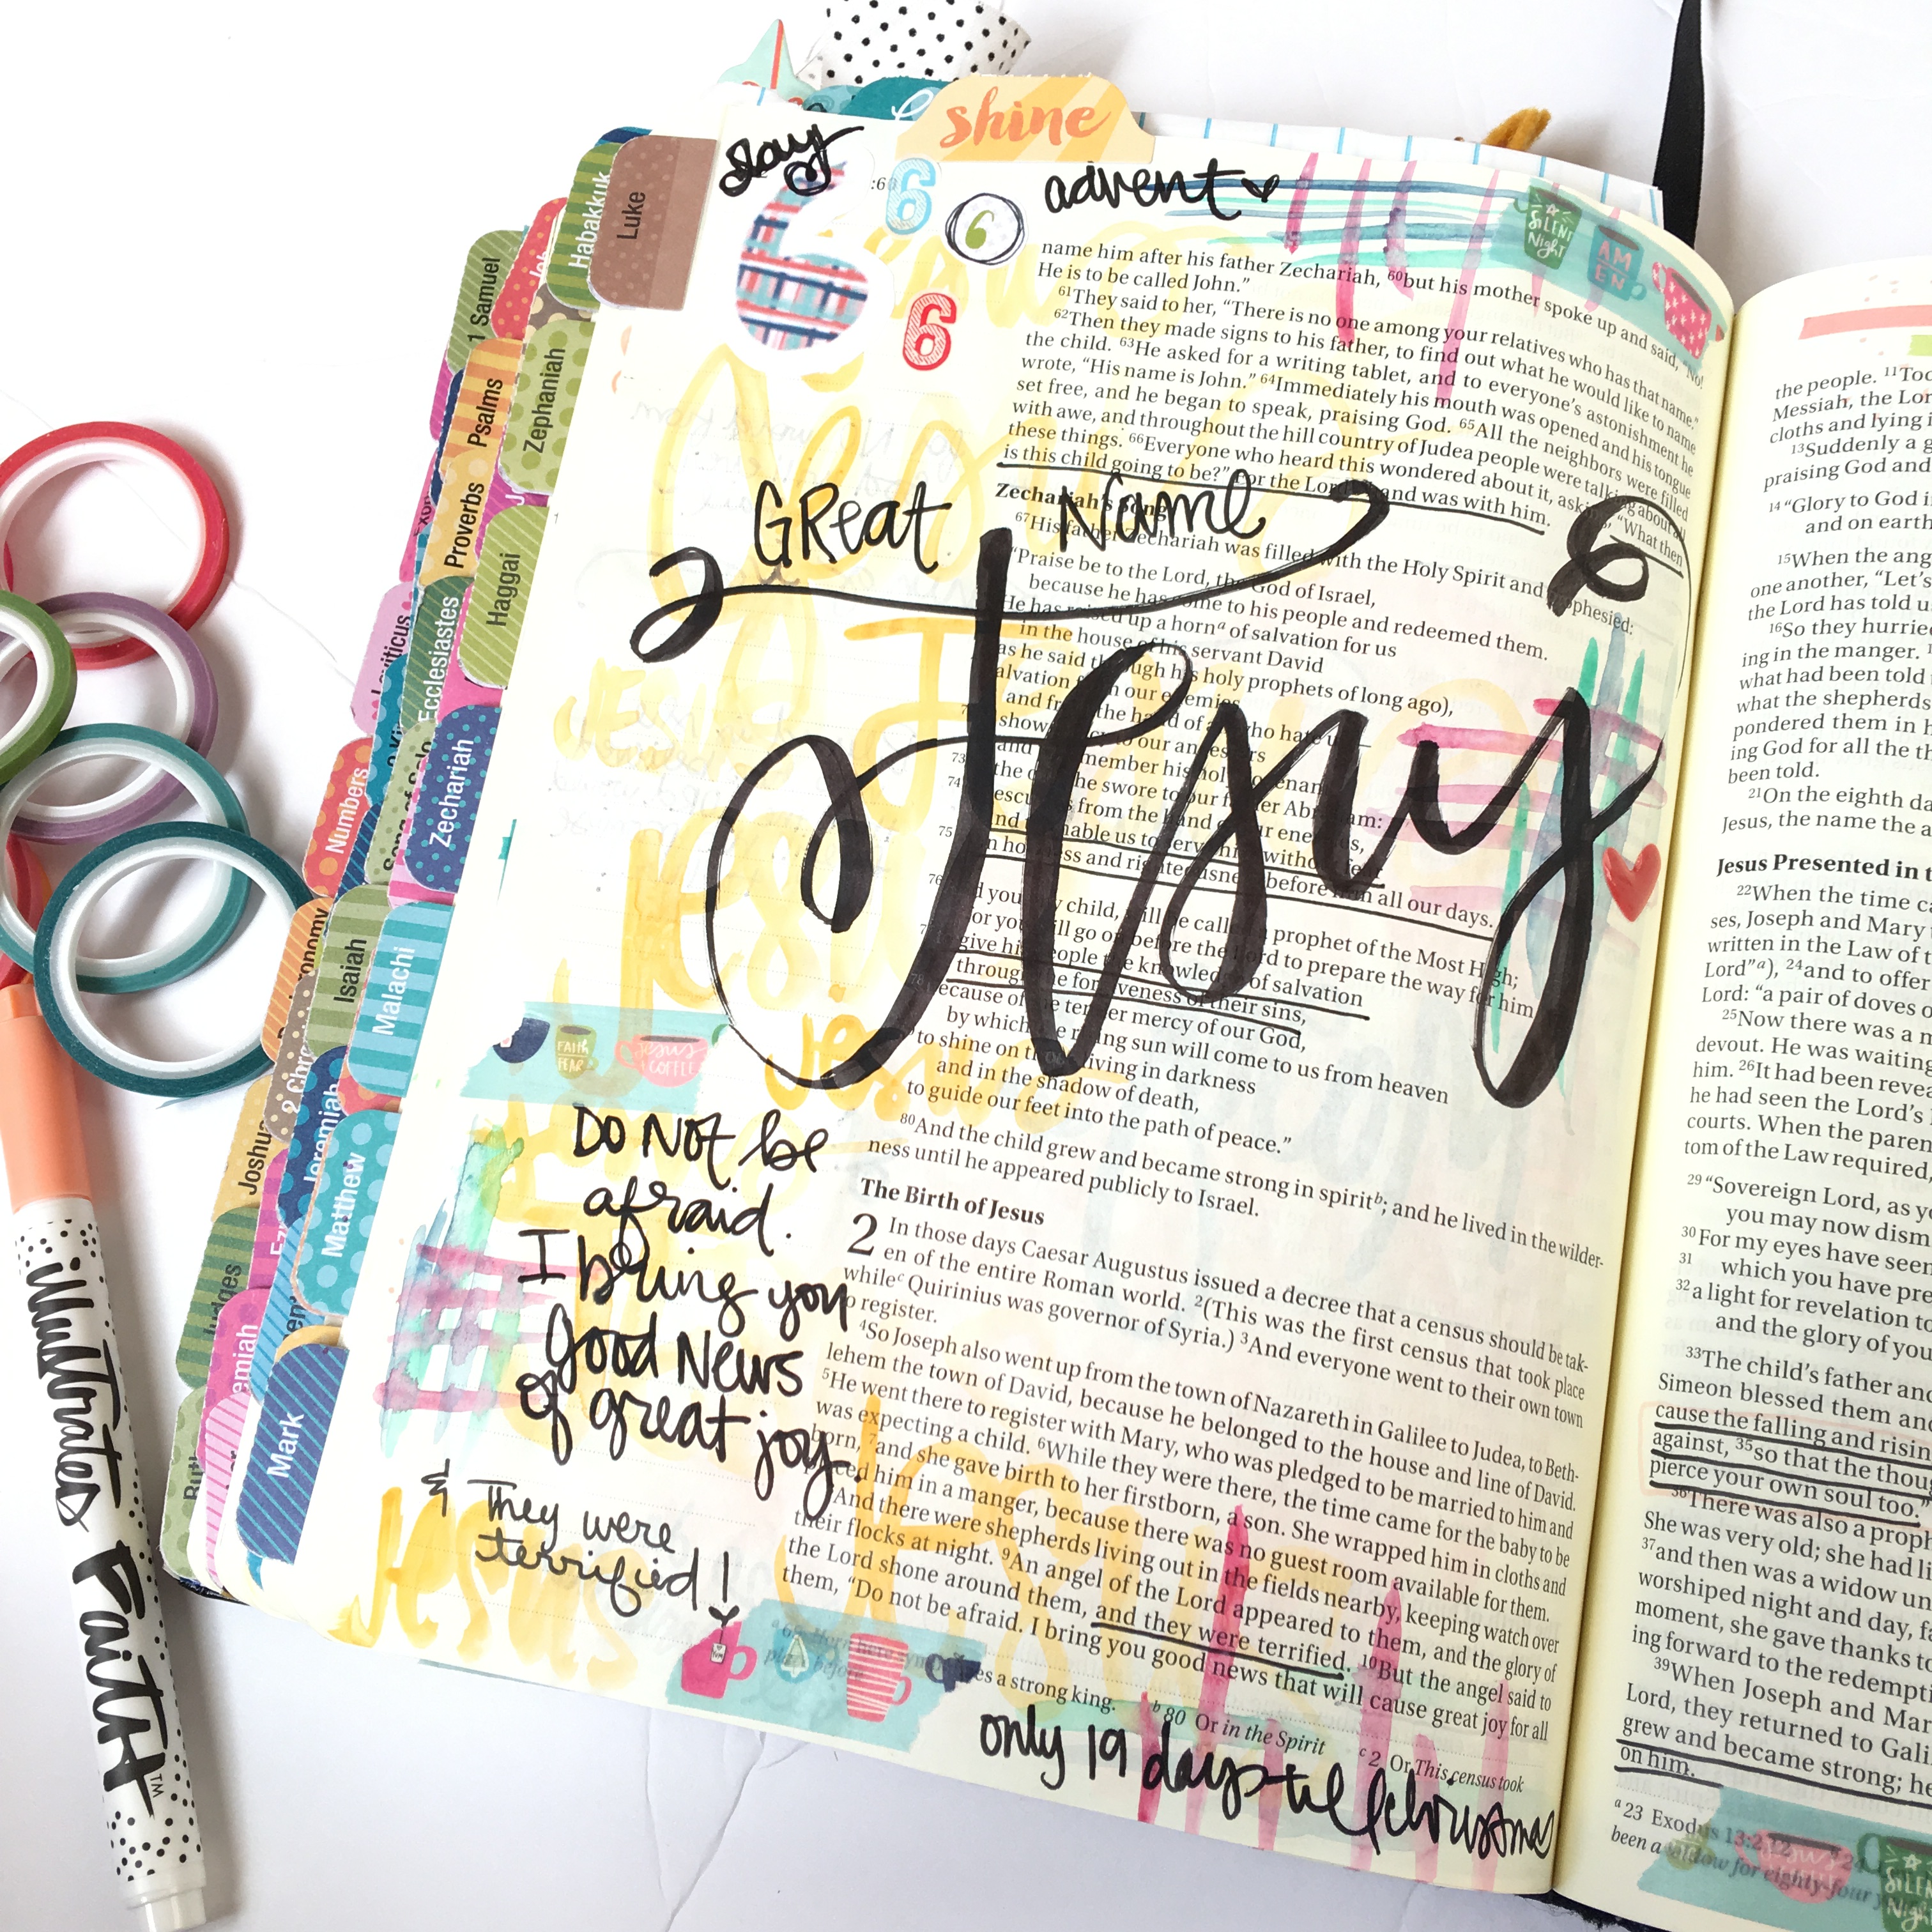 shine
day
6
6
6
6
advent
SILENT Night
AMEN
Luke
Habakkuk
1 Samuel
Psalms
Zephaniah
Proverbs
Haggai
Ecclesiastes
Leviticus
Numbers
Zechariah
Isaiah
Malachi
2 Chr
Joshua
Jeremiah
Matthew
Judges
emiah
Ruth
Mark
name him after his father Zechariah, 60but his mother spoke up and said, "No!
He is to be called John."
61They said to her, "There is no one among your relatives who has that name."
62Then they made signs to his father, to find out what he would like to name
the child. 63He asked for a writing tablet, and to everyone's astonishment he
wrote, "His name is John." 64Immediately his mouth was opened and his tongue
set free, and he began to speak, praising God. 65All the neighbors were filled
with awe, and throughout the hill country of Judea people were talking about all
these things. 66Everyone who heard this wondered about it, asking, "What then
is this child going to be?" For the Lord's hand was with him.
GReat Name
Jesus
Zechariah's Song
67His father Zechariah was filled with the Holy Spirit and prophesied:
"Praise be to the Lord, the God of Israel,
because he has come to his people and redeemed them.
He has raised up a horna of salvation for us
in the house of his servant David
as he said through his holy prophets of long ago),
alvation from our enemies
and from the hand of all who hate us—
show mercy to our ancestors
and remember his holy covenant
73 the oath he swore to our father Abraham:
74 rescue us from the hand of our enemies,
and enable us to serve him without fear
75 in holiness and righteousness before him all our days.
76 And you, my child, will be called a prophet of the Most High;
for you will go on before the Lord to prepare the way for him
give his people the knowledge of salvation
through the forgiveness of their sins,
78 because of the tender mercy of our God,
by which the rising sun will come to us from heaven
to shine on those living in darkness
and in the shadow of death,
to guide our feet into the path of peace."
80And the child grew and became strong in spiritb; and he lived in the wilder-
ness until he appeared publicly to Israel.
The Birth of Jesus
2 In those days Caesar Augustus issued a decree that a census should be tak-
en of the entire Roman world. 2(This was the first census that took place
whilec Quirinius was governor of Syria.) 3And everyone went to their own town
to register.
4So Joseph also went up from the town of Nazareth in Galilee to Judea, to Beth-
lehem the town of David, because he belonged to the house and line of David.
5He went there to register with Mary, who was pledged to be married to him and
was expecting a child. 6While they were there, the time came for the baby to be
born, 7and she gave birth to her firstborn, a son. She wrapped him in cloths and
placed him in a manger, because there was no guest room available for them.
And there were shepherds living out in the fields nearby, keeping watch over
their flocks at night. 9An angel of the Lord appeared to them, and the glory of
the Lord shone around them, and they were terrified. 10But the angel said to
them, "Do not be afraid. I bring you good news that will cause great joy for all
es a strong king. b 80 Or in the Spirit c 2 Or This census took
JESUS
JESUS
Jesus
Jesus
JESUS
FAITH FEAR
Jesus + COFFEE
DO NOt be
afraid.
I bring you
good News
of great joy.
& They were
terrified!
only 19 days til Christmas
illustrated FAITH™
the people. 11Tod
Messiah, the Lor
cloths and lying i
13Suddenly a g
praising God and
14 "Glory to God i
and on earth
15When the ang
one another, "Let's
the Lord has told u
16So they hurried
ing in the manger.
what had been told
what the shepherds
pondered them in h
ing God for all the th
been told.
21On the eighth da
Jesus, the name the a
Jesus Presented in t
22When the time ca
ses, Joseph and Mary
written in the Law of t
Lord"a), 24and to offer
Lord: "a pair of doves o
25Now there was a m
devout. He was waiting
him. 26It had been revea
he had seen the Lord's
courts. When the paren
tom of the Law required,
29 "Sovereign Lord, as yo
you may now dism
30 For my eyes have seen
31 which you have pre
32 a light for revelation to
and the glory of you
33The child's father and
Simeon blessed them and
cause the falling and risin
against, 35so that the thoug
pierce your own soul too."
36There was also a proph
She was very old; she had li
37and then was a widow un
worshiped night and day, fa
moment, she gave thanks to
ing forward to the redempti
39When Joseph and Mar
Lord, they returned to Gali
grew and became strong; he
on him.
a 23 Exodus 13:2,12
been a widow for eighty-four y
SILENT Night